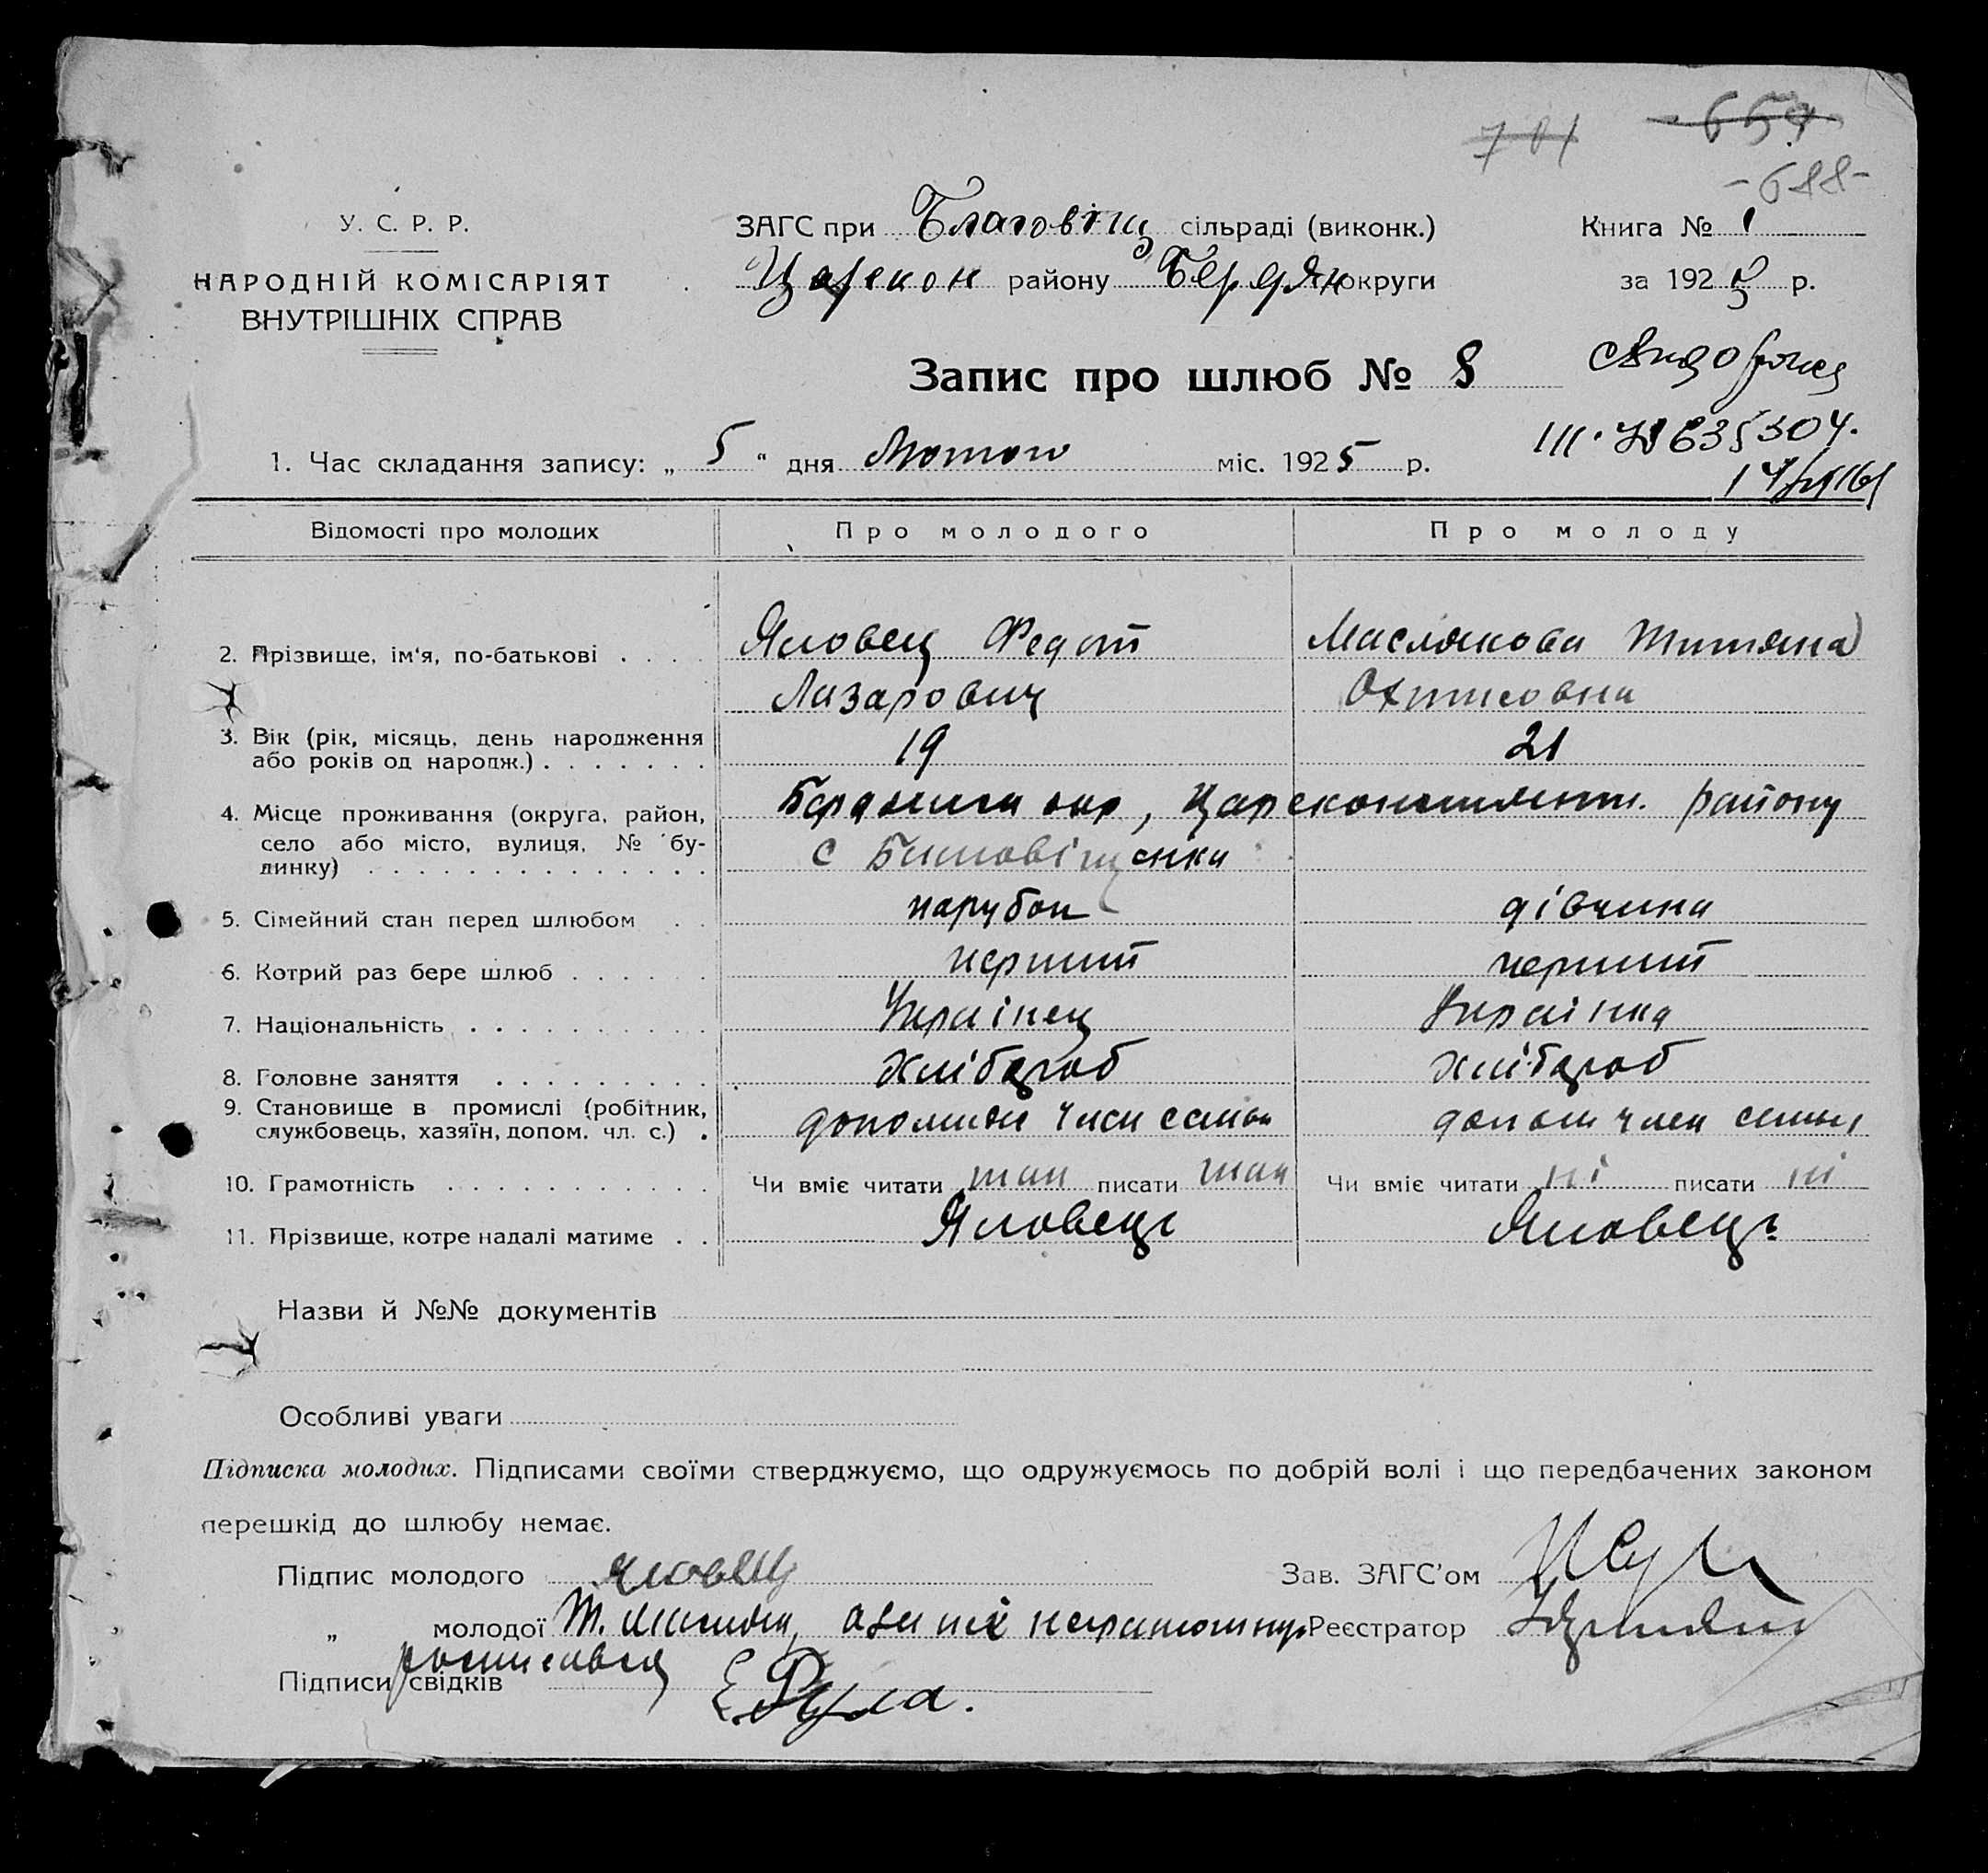 701 659
-688-
У. С. Р. Р.
НАРОДНІЙ КОМІСАРІЯТ
ВНУТРІШНІХ СПРАВ
ЗАГС при Благовіщ сільраді (виконк.)
Царекон району Бердян округи
Книга № 1
за 1925 р.
Запис про шлюб № 8
1. Час складання запису: „ 5 " дня Лютого міс. 1925 р.
Відомості про молодих Про молодого Про молоду
2. Прізвище, ім'я, по-батькові . . . . Яловец Федот Маслякова Титяна
Лазарович
3. Вік (рік, місяць, день народження
або років од народж.) . . . . . . . 19 21
4. Місце проживання (округа, район, Бердянська окр, Цареконстянтин. району
село або місто, вулиця, № бу-
динку) . . . . . . . . . . . . . . с Благовіщенка
5. Сімейний стан перед шлюбом . . парубок дівчина
6. Котрий раз бере шлюб . . . . . . перший перший
7. Національність . . . . . . . . . . Украінец Украінка
8. Головне заняття . . . . . . . . . хлібороб хлібороб
9. Становище в промислі (робітник,
службовець, хазяїн, допом. чл. с.) . член семьи допом член семьи
10. Грамотність . . . . . . . . . . . Чи вміє читати так писати так Чи вміє читати ні писати ні
11. Прізвище, котре надалі матиме . . Яловец Яловец
Назви й №№ документів
Особливі уваги
Підписка молодих. Підписами своїми стверджуємо, що одружуємось по добрій волі і що передбачених законом
перешкід до шлюбу немає.
Підпис молодого Яловец Зав. ЗАГС'ом
„ молодої Реєстратор
росписався
Підписи свідків